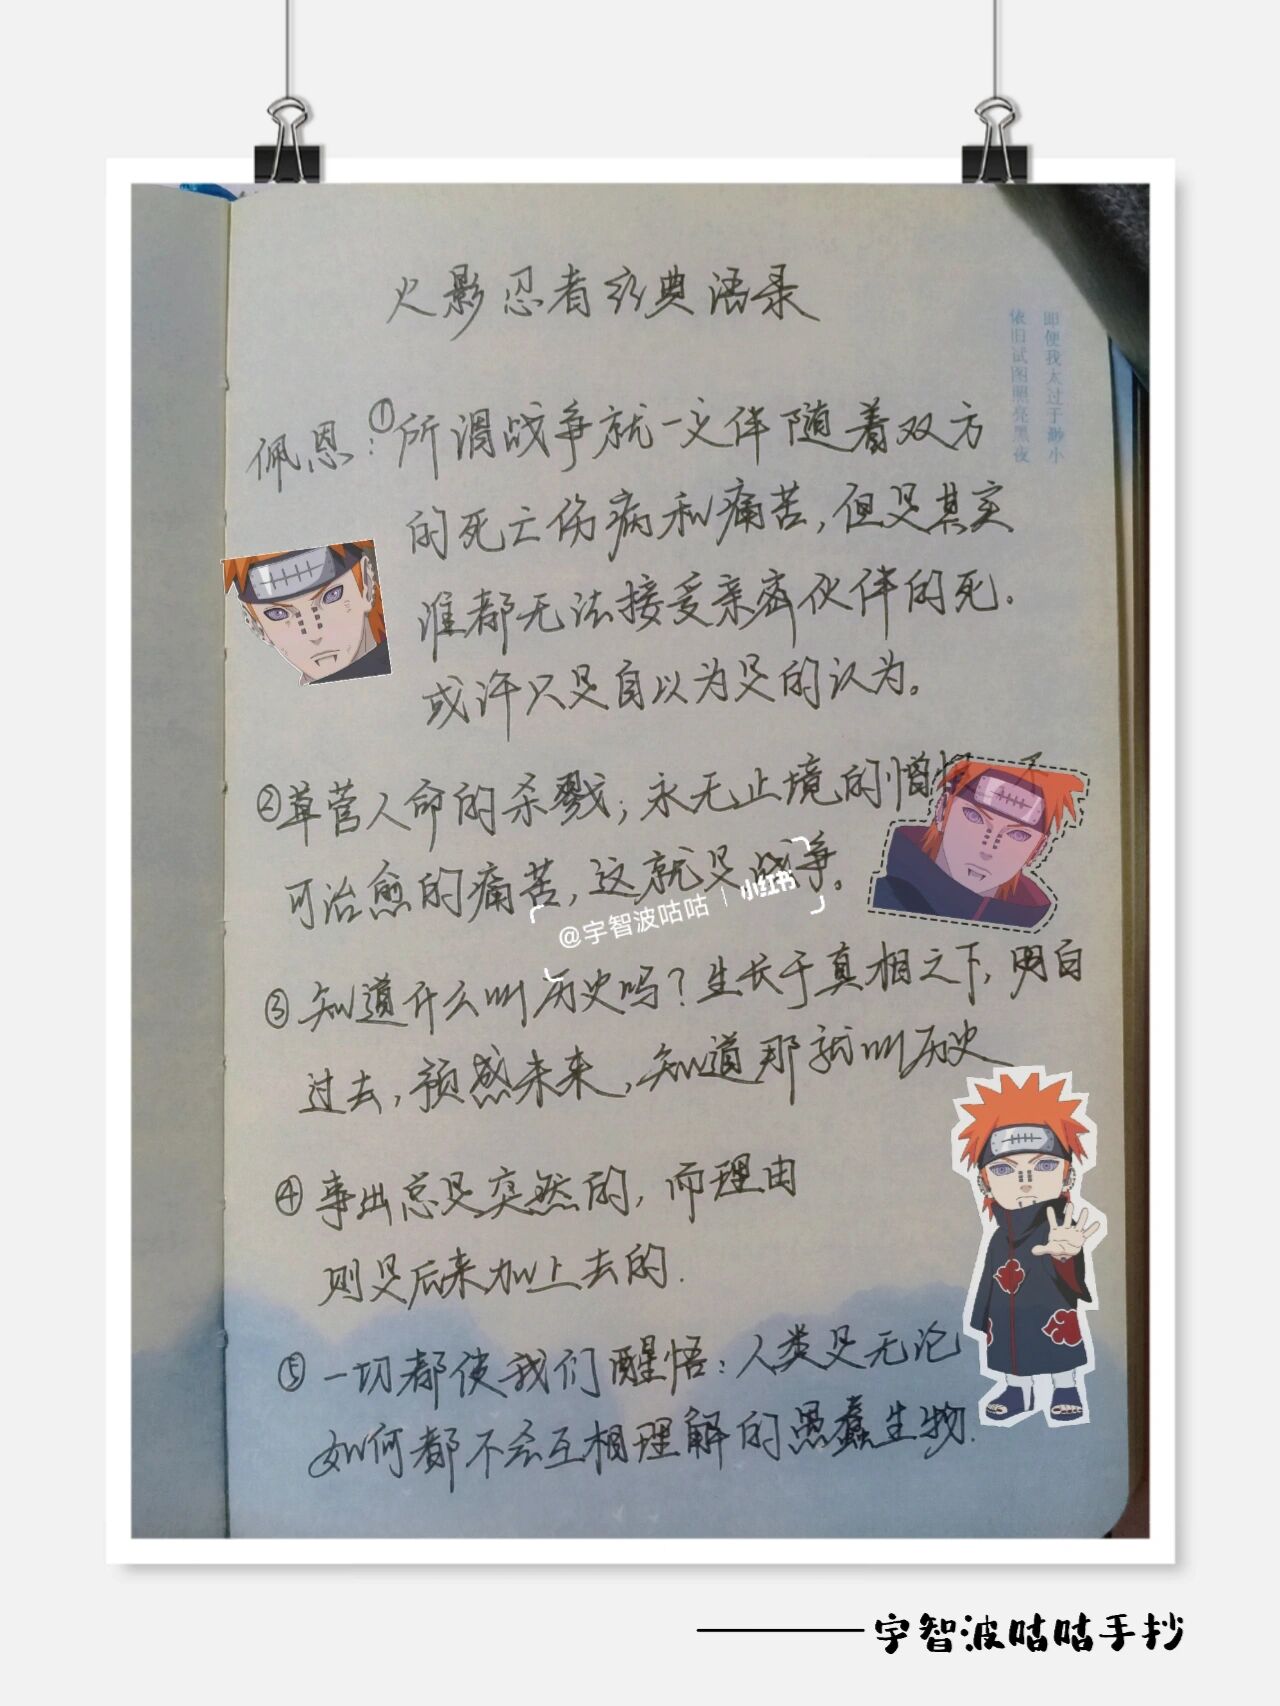 火影忍者经典语录
即便我太过于渺小
依旧试图照亮黑夜
佩恩：①所谓战争就一定伴随着双方
的死亡伤病和痛苦，但是其实
谁都无法接受亲密伙伴的死.
或许只是自以为是的认为。
②草菅人命的杀戮；永无止境的憎
可治愈的痛苦，这就是战争。
@宇智波咕咕 | 小红书
③知道什么叫历史吗？生长于真相之下，明白
过去，预感未来，知道那就叫历史
④事出总是突然的，而理由
则是后来加上去的.
⑤一切都使我们醒悟：人类是无论
如何都不会互相理解的愚蠢生物.
——宇智波咕咕手抄